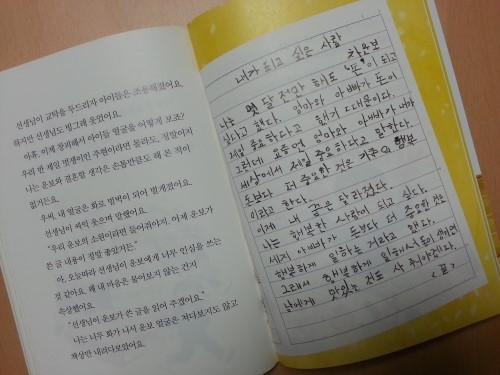 선생님이 교탁을 두드리자 아이들은 조용해졌어요.
하지만 선생님도 빙그레 웃었어요.
아휴, 이제 창피해서 아이들 얼굴을 어떻게 보죠?
우리 반 제일 말썽이던 주원이라면 몰라도, 정말이지
나는 운보와 결혼할 생각은 손톱만큼도 해 본 적이
없거든요.
우씨, 내 얼굴은 화로 범벅이 되어 벌게졌어요.
선생님이 싸익 웃으며 말했어요.
"우리 운보의 소원이라면 들어줘야지. 이제 운보가
쓴 글 내용이 정말 좋았거든."
아, 오늘따라 선생님이 운보에게 너무 인심을 쓰는
것 같아요. 왜 내 마음은 물어보지 않는 건지
속상했어요.
"선생님이 운보가 쓴 글을 읽어 주겠어요."
나는 너무 화가 나서 운보 얼굴은 쳐다보지도 않고
책상만 내려다보았어요.
내가 되고 싶은 사람
차운보
나는 몇 달 전만 해도 "돈"이 되고
싶다고 했다. 엄마와 아빠가 돈이
제일 중요하다고 했기 때문이다.
그런데 요즘엔 엄마와 아빠가 내가
세상에서 제일 중요하다고 말한다.
돈보다 더 중요한 것은 가족의 행복
이라고 한다.
이제 내 꿈은 달라졌다.
나는 행복한 사람이 되고 싶다.
세지 아빠가 돈보다 더 중요한 것은
행복하게 일하는 거라고 했다.
그래서 행복하게 일해서 돈이 생기면
남에게 맛있는 것도 사 줘야겠다.
<끝>